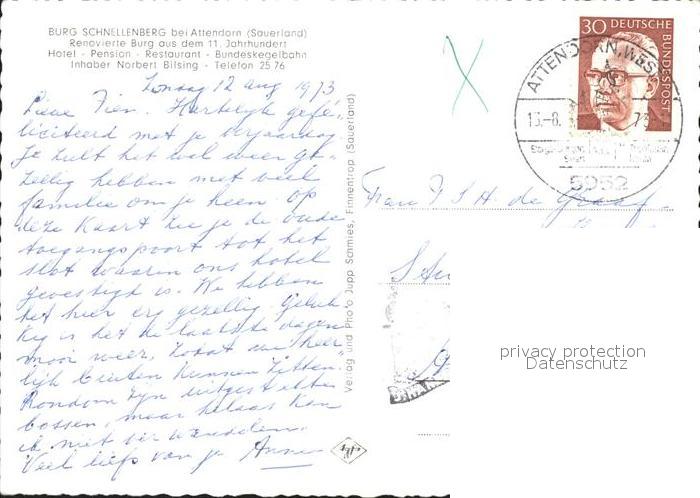 BURG SCHNELLENBERG bei Attendorn (Sauerland)
Renovierte Burg aus dem 11. Jahrhundert
Hotel - Pension - Restaurant - Bundeskegelbahn
Inhaber Norbert Bilsing - Telefon 25 76
Zondag 12 aug 1973
Lieve Fien. Hartelijk gefe-
liciteerd met je verjaardag
Je zult het wel weer ge-
zellig hebben met veel
familie om je heen. Op
deze kaart zie je de oude
toegangspoort tot het
slot waarin ons hotel
gevestigd is. We hebben
het hier erg gezellig. Geluk-
kig is het de laatste dagen
mooi weer, zodat we heer-
lijk buiten kunnen zitten.
Rondom zijn uitgestrekte
bossen, maar helaas kan
ik niet ver wandelen.
Veel liefs van je Annie
Verlag und Photo Jupp Schmies, Finnentrop (Sauerland)
Agfa
30 DEUTSCHE BUNDESPOST
ATTENDORN, WESTF
13.-8. 73
5952
Frau F J H de Graaf
privacy protection
Datenschutz